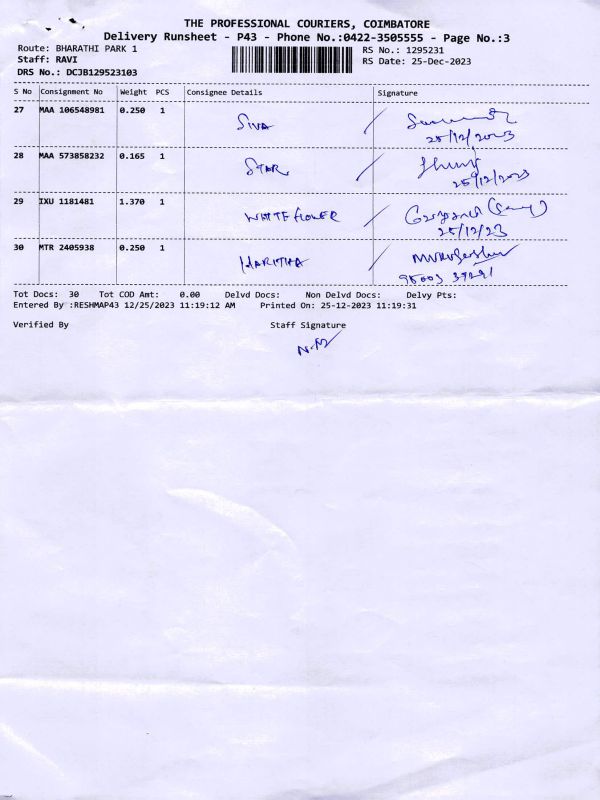 THE PROFESSIONAL COURIERS, COIMBATORE
Delivery Runsheet - P43 - Phone No.:0422-3505555 - Page No.:3
Route: BHARATHI PARK 1 RS No.: 1295231
Staff: RAVI RS Date: 25-Dec-2023
DRS No.: DCJB129523103
S No Consignment No Weight PCS Consignee Details Signature
27 MAA 106548981 0.250 1 SIVA /
25/12/2023
28 MAA 573858232 0.165 1 STAR /
25/12/2023
29 IXU 1181481 1.370 1 WHITE flOWER /
25/12/23
30 MTR 2405938 0.250 1 HARITHA /
95003 39291
Tot Docs: 30 Tot COD Amt: 0.00 Delvd Docs: Non Delvd Docs: Delvy Pts:
Entered By :RESHMAP43 12/25/2023 11:19:12 AM Printed On: 25-12-2023 11:19:31
Verified By Staff Signature